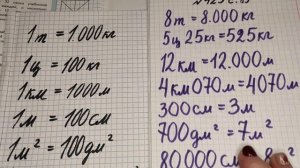 1т = 1.000кг
1ц = 100кг
1км = 1000м
1м = 100см
1м² = 100дм²
8т = 8.000кг
5ц 25кг = 525кг
12км = 12.000м
4км 070м = 4070м
300см = 3м
700дм² = 7м²
80 000см² = 8м²